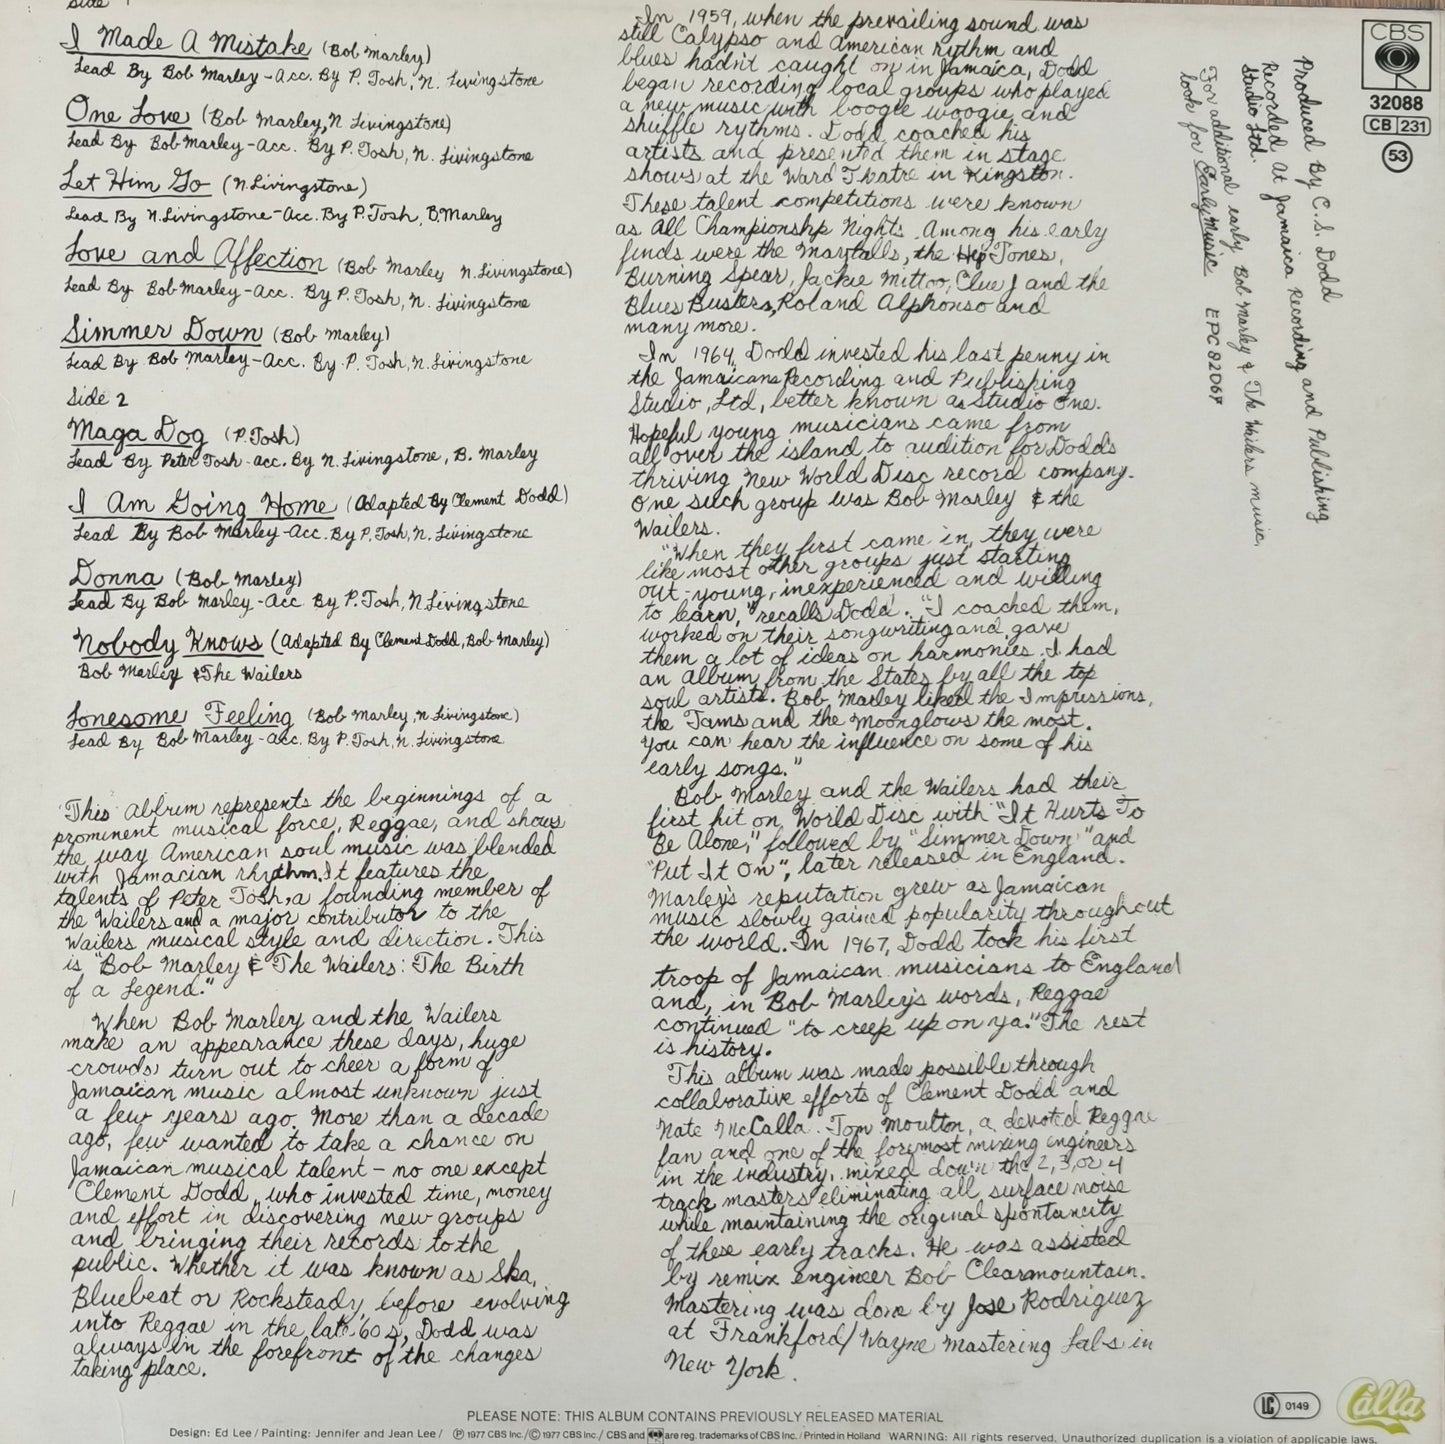 Side 1
I Made A Mistake (Bob Marley)
Lead By Bob Marley-Acc. By P. Tosh, N. Livingstone
One Love (Bob Marley, N Livingstone)
Lead By Bob Marley-Acc. By P. Tosh, N. Livingstone
Let Him Go (N. Livingstone)
Lead By N. Livingstone-Acc. By P. Tosh, B. Marley
Love and Affection (Bob Marley N. Livingstone)
Lead By Bob Marley-Acc. By P. Tosh, N. Livingstone
Simmer Down (Bob Marley)
Lead By Bob Marley-Acc. By P. Tosh, N. Livingstone
Side 2
Maga Dog (P. Tosh)
Lead By Peter Tosh-acc. By N. Livingstone, B. Marley
I Am Going Home (Adapted By Clement Dodd)
Lead By Bob Marley-Acc. By P. Tosh, N. Livingstone
Donna (Bob Marley)
Lead By Bob Marley-Acc By P. Tosh, N Livingstone
Nobody Knows (Adapted By Clement Dodd, Bob Marley)
Bob Marley & The Wailers
Lonesome Feeling (Bob Marley, N. Livingstone)
Lead By Bob Marley-Acc. By P. Tosh, N. Livingstone
This album represents the beginnings of a
prominent musical force, Reggae, and shows
the way American soul music was blended
with Jamacian rhythm. It features the
talents of Peter Tosh, a founding member of
the Wailers and a major contributor to the
Wailers musical style and direction. This
is "Bob Marley & The Wailers: The Birth
of a Legend."
When Bob Marley and the Wailers
make an appearance these days, huge
crowds turn out to cheer a form of
Jamaican music almost unknown just
a few years ago. More than a decade
ago, few wanted to take a chance on
Jamaican musical talent - no one except
Clement Dodd, who invested time, money
and effort in discovering new groups
and bringing their records to the
public. Whether it was known as Ska,
Bluebeat or Rocksteady, before evolving
into Reggae in the late '60s, Dodd was
always in the forefront of the changes
taking place.
In 1959, when the prevailing sound was
still Calypso and American rythm and
blues hadn't caught on in Jamaica, Dodd
began recording local groups who played
a new music with boogie woogie and
shuffle rythms. Dodd coached his
artists and presented them in stage
shows at the Ward Theatre in Kingston.
These talent competitions were known
as All Championship Nights. Among his early
finds were the Maytalls, the Hep Tones,
Burning Spear, Jackie Mittoo, Clue J and the
Blues Busters, Roland Alphonso and
many more.
In 1964, Dodd invested his last penny in
the Jamaicans Recording and Publishing
Studio, Ltd, better known as Studio One.
Hopeful young musicians came from
all over the island to audition for Dodd's
thriving New World Disc record company.
One such group was Bob Marley & the
Wailers.
"When they first came in, they were
like most other groups just starting
out - young, inexperienced and willing
to learn," recalls Dodd. "I coached them,
worked on their songwriting and gave
them a lot of ideas on harmonies. I had
an album from the States by all the top
soul artists. Bob Marley liked the Impressions,
the Tams and the Moonglows the most.
You can hear the influence on some of his
early songs."
Bob Marley and the Wailers had their
first hit on World Disc with "It Hurts To
Be Alone," followed by "Simmer Down" and
"Put It On", later released in England.
Marley's reputation grew as Jamaican
music slowly gained popularity throughout
the world. In 1967, Dodd took his first
troop of Jamaican musicians to England
and, in Bob Marley's words, Reggae
continued "to creep up on ya." The rest
is history.
This album was made possible through
collaborative efforts of Clement Dodd and
Nate McCalla. Tom Moulton, a devoted Reggae
fan and one of the foremost mixing engineers
in the industry, mixed down the 2, 3, or 4
track masters eliminating all surface noise
while maintaining the original spontaneity
of these early tracks. He was assisted
by remix engineer Bob Clearmountain.
Mastering was done by Jose Rodriguez
at Frankford/Wayne Mastering Labs in
New York.
Produced By C.S. Dodd
Recorded At Jamaica Recording and Publishing
Studio Ltd.
For additional early Bob Marley & The Wailers music,
look for Early Music EPC 82067
CBS
32088
CB 231
53
PLEASE NOTE: THIS ALBUM CONTAINS PREVIOUSLY RELEASED MATERIAL
Design: Ed Lee / Painting: Jennifer and Jean Lee / Ⓟ 1977 CBS Inc./ © 1977 CBS Inc./ CBS and are reg. trademarks of CBS Inc. / Printed in Holland WARNING: All rights reserved. Unauthorized duplication is a violation of applicable laws.
LC 0149
Calla